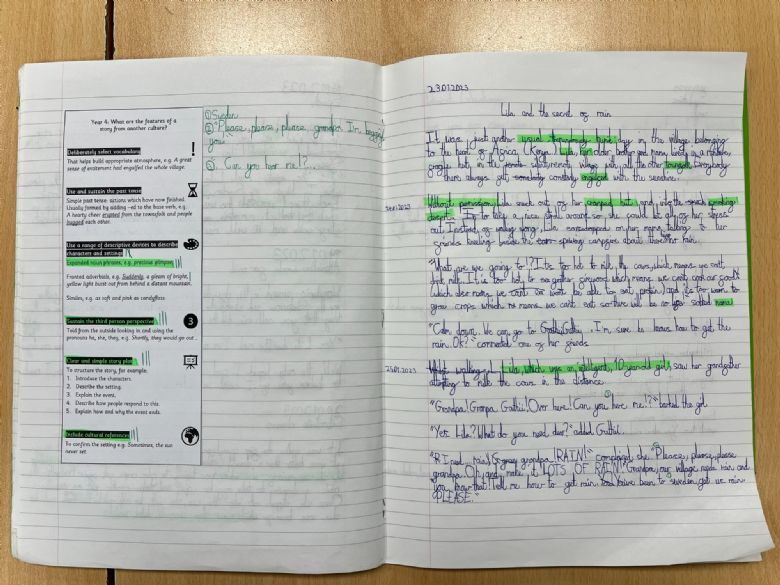 Year 4: What are the features of a
story from another culture?
Deliberately select vocabulary
That helps build appropriate atmosphere, e.g. A great
sense of excitement had engulfed the whole village.
Use and sustain the past tense
Simple past tense: actions which have now finished.
Usually formed by adding -ed to the base verb, e.g.
A hearty cheer erupted from the townsfolk and people
hugged each other.
Use a range of descriptive devices to describe
characters and settings
Expanded noun phrases, e.g. precious glimpses
Fronted adverbials, e.g. Suddenly, a gleam of bright,
yellow light burst out from behind a distant mountain.
Similes, e.g. as soft and pink as candyfloss
Sustain the third person perspective
3
Told from the outside looking in and using the
pronouns he, she, they, e.g. Shortly, they would go out ..
Clear and simple story plan
To structure the story, for example:
1. Introduce the characters.
2. Describe the setting.
3. Explain the event.
4. Describe how people respond to this.
5. Explain how and why the event ends.
Include cultural references
To confirm the setting e.g. Sometimes, the sun
never set.
① Sweden
② "Please, please, please, grandpa. I'm begging
you"
③ Can you hear me!?
23.01.2023
Lila and the secret of rain
It was just another usual day in the village belonging
to the heart of Africa (Kenya). Lila,
village with all the other Everybody
there always get constantly engulfed with the sunshine.
Without permission, Lila snuck out of her cramped hut and into the
to take a nice stroll around so she could let all of her stress
out. Instead, of going, Lila eavesdropped on her mama talking to her
friends beside the campfire about the rain.
"What are we going to!? It's too hot to milk the cows, which means we can't
drink milk. It is too hot to gather firewood which means we can't cook our food
(which also means we won't be able to eat protein) and it's too warm to
grow crops which means we can't eat so there will be no food" sobbed mama
"Calm down. We can go to I'm sure he knows how to get the
rain. Ok?" one of her friends.
25.01.2023
Whilst walking, Lila, which was an intelligent, 10 year old girl, saw her grandfather
attempting to milk the cows in the distance.
"Grandpa! Grampa Over here! Can you here me!?" barked the girl
"Yes Lila? What do you need dear?" added
"I need rain! grandpa! RAIN!" she. "Please, please, please
grandpa. Oh, and make it LOTS OF RAIN! Grandpa, our village needs rain and
you know that! Tell me how to get rain. You've been to sweden get us rain
PLEASE."